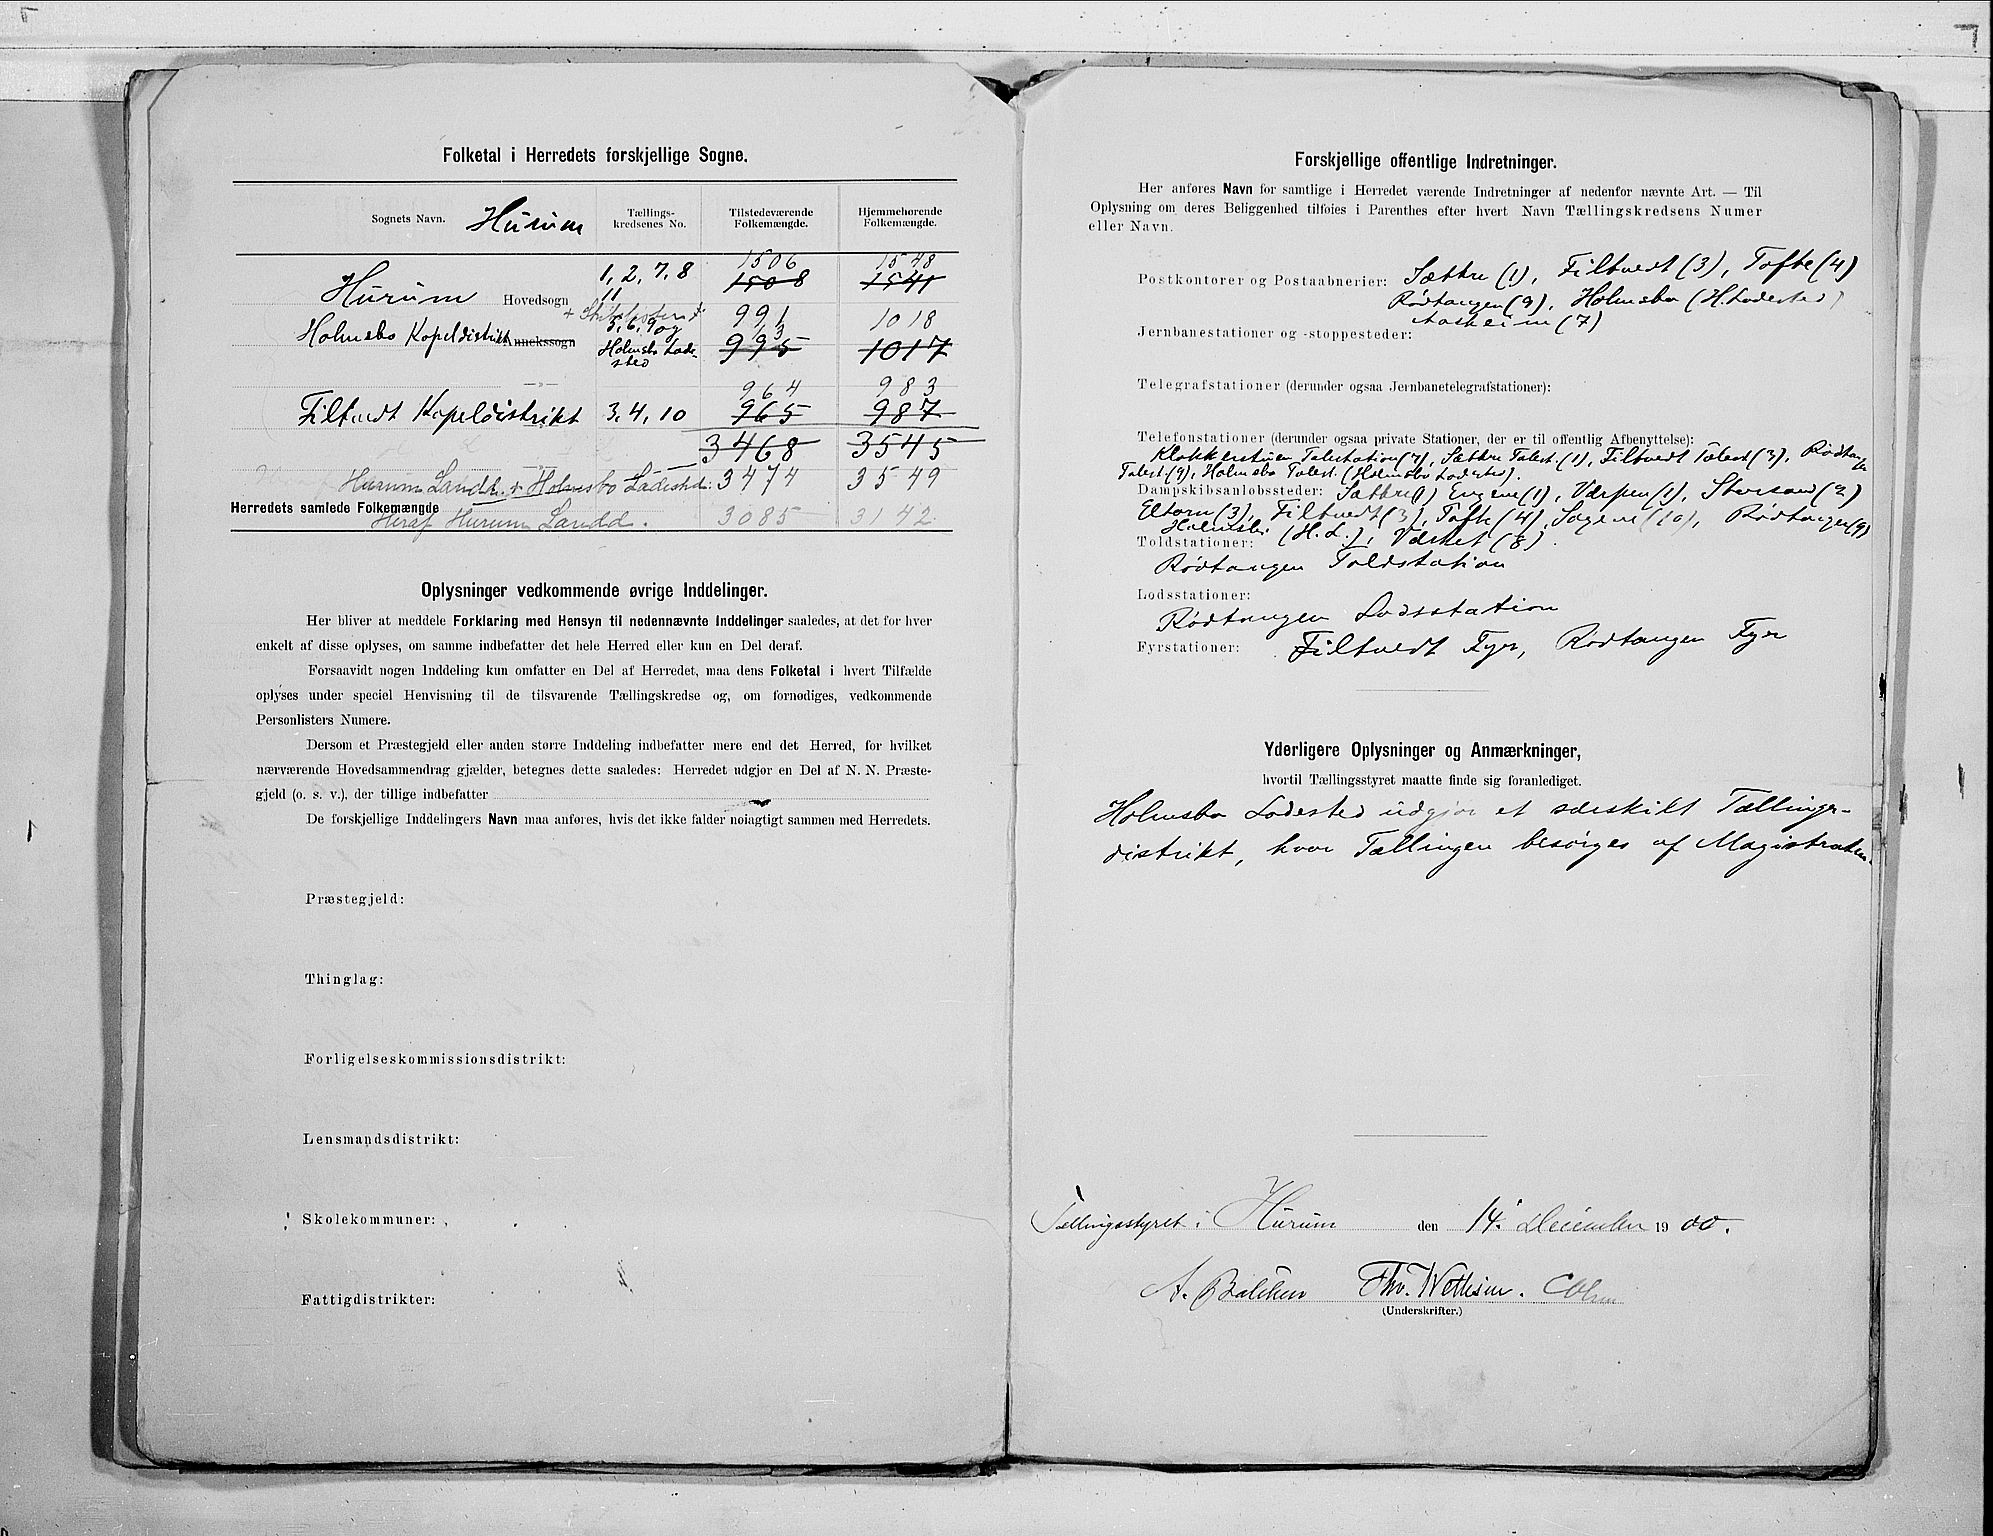 Folketal i Herredets forskjellige Sogne.
Sognets Navn. Hurum
Tællings-
kredsenes No.
Tilstedeværende
Folkemængde.
Hjemmehørende
Folkemængde.
1506 1548
Hurum Hovedsogn 1, 2, 7, 8 1508 1541
11
991 1018
5, 6, 9 og
Holmsbo Kapeldistrikt Annekssogn Holmsbo Lade- 995 1017
sted
964 983
Filtvedt Kapeldistrikt 3, 4, 10 965 987
3468 3545
Hurum Landd. + Holmsbo Ladested: 3474 3549
Herredets samlede Folkemængde
Heraf Hurum Landd. 3085 3142
Oplysninger vedkommende øvrige Inddelinger.
Her bliver at meddele Forklaring med Hensyn til nedennævnte Inddelinger saaledes, at det for hver
enkelt af disse oplyses, om samme indbefatter det hele Herred eller kun en Del deraf.
Forsaavidt nogen Inddeling kun omfatter en Del af Herredet, maa dens Folketal i hvert Tilfælde
oplyses under speciel Henvisning til de tilsvarende Tællingskredse og, om fornødiges, vedkommende
Personlisters Numere.
Dersom et Præstegjeld eller anden større Inddeling indbefatter mere end det Herred, for hvilket
nærværende Hovedsammendrag gjælder, betegnes dette saaledes: Herredet udgjør en Del af N. N. Præste-
gjeld (o. s. v.), der tillige indbefatter
De forskjellige Inddelingers Navn maa anføres, hvis det ikke falder nøiagtigt sammen med Herredets.
Præstegjeld:
Thinglag:
Forligelseskommissionsdistrikt:
Lensmandsdistrikt:
Skolekommuner:
Fattigdistrikter:
Forskjellige offentlige Indretninger.
Her anføres Navn for samtlige i Herredet værende Indretninger af nedenfor nævnte Art. — Til
Oplysning om deres Beliggenhed tilføies i Parenthes efter hvert Navn Tællingskredsens Numer
eller Navn.
Postkontorer og Postaabnerier: Sættre (1), Filtvedt (3), Tofte (4)
Rødtangen (9), Holmsbo (H. Ladested)
Aasheim (7)
Jernbanestationer og -stoppesteder:
Telegrafstationer (derunder ogsaa Jernbanetelegrafstationer):
Telefonstationer (derunder ogsaa private Stationer, der er til offentlig Afbenyttelse):
Klokkerstuen Talestation (7), Sættre Talest. (1), Filtvedt Talest (3), Rødtangen
Talest. (9), Holmsbo Talest. (Holmsbo Ladested).
Dampskibsanløbssteder: Sættre (1) Engene (1), Verpen (1), Storsand (2)
Eltorn (3), Filtvedt (3), Tofte (4), Sagene (10), Rødtangen (9)
Holmsbo (H. L.), Værket (8).
Toldstationer:
Rødtangen Toldstation
Lodsstationer:
Rødtangen Lodsstation
Fyrstationer: Filtvedt Fyr, Rødtangen Fyr
Yderligere Oplysninger og Anmærkninger,
hvortil Tællingsstyret maatte finde sig foranlediget.
Holmsbo Ladested udgjør et særskilt Tællings-
distrikt, hvor Tællingen besørges af Magistraten.
Tællingsstyret i Hurum den 14. December 1900.
A. Balchen Thv. Wettesen.
(Underskrifter.)